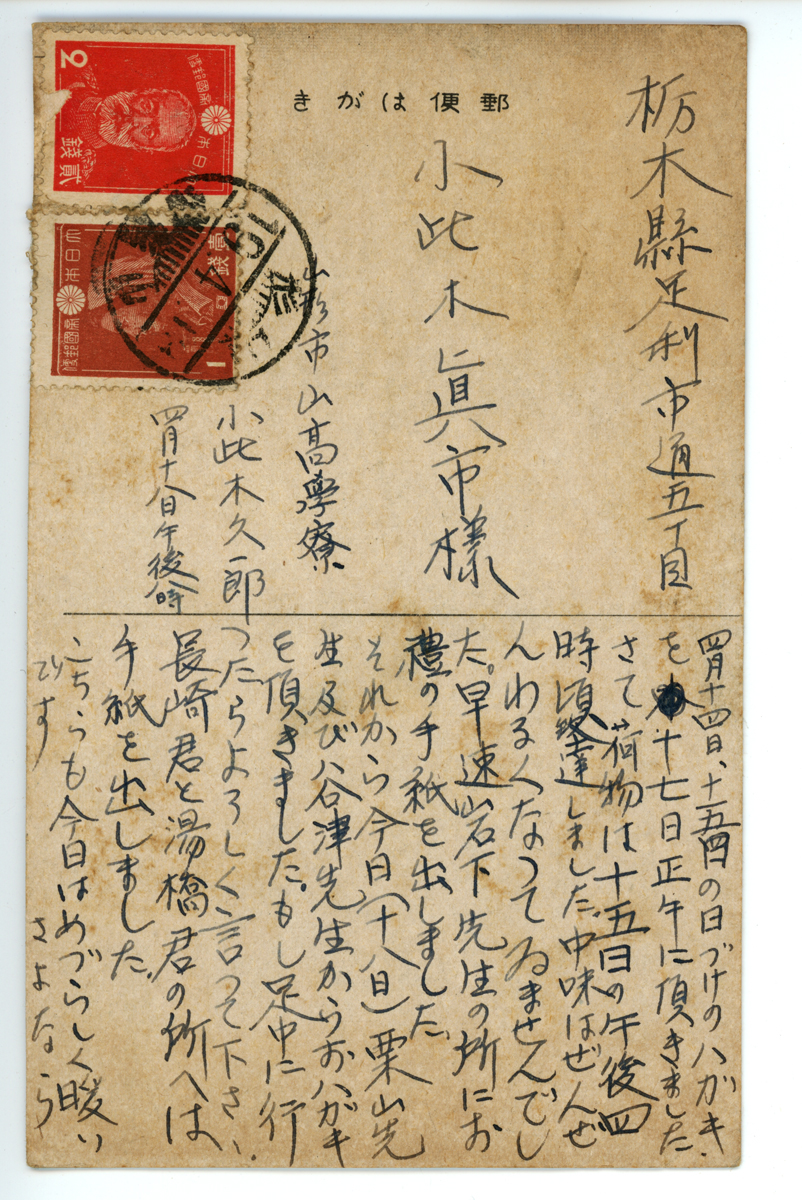 郵便はがき
栃木縣足利市通五丁目
小此木眞市様
山形市山高學寮に
小此木久一郎
四月十八日午後 時
2
大日本帝國郵便
貳錢
大日本帝國郵便
壹錢
1
四月十四日、十五日の日づけのハガキ、
を十七日正午に頂きました
さて荷物は十五日の午後四
時頃到達しました。中味はぜんぜ
んわるくなつてゐませんでし
た。早速岩下先生の所にお
禮の手紙を出しました。
それから今日(十八日)栗山先
生及び谷津先生からおハガキ
を頂きました。もし足中に行
つたらよろしく言つて下さい。
長崎君と湯橋君の所へは
手紙を出しました。
こちらも今日はめづらしく暖い
です
さよなら